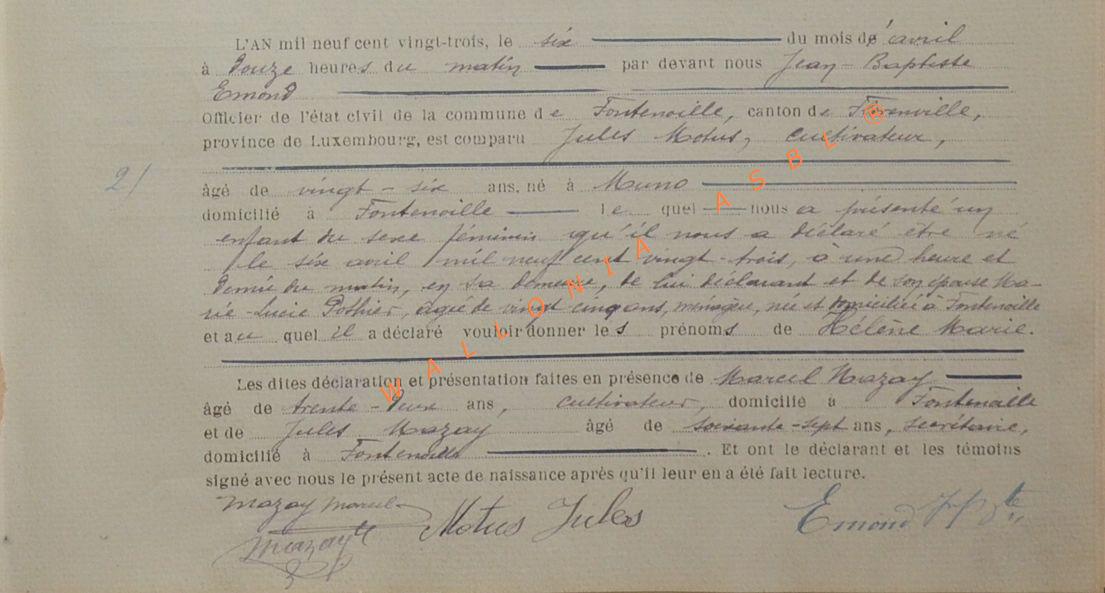 L'AN mil neuf cent vingt-trois, le six du mois d'avril
à douze heures du matin par devant nous Jean-Baptiste
Emond
Officier de l'état civil de la commune de Fontenoille, canton de Florenville,
province de Luxembourg, est comparu Jules Motus, cultivateur,
2/
âgé de vingt-six ans, né à Muno
domicilié à Fontenoille le quel nous a présenté un
enfant du sexe féminin qu'il nous a déclaré être né
le six avril mil neuf cent vingt-trois, à une heure et
demie du matin, en sa demeure, de lui déclarant et de son épouse Ma-
rie-Lucie Pothier, agée de vingt cinq ans, ménagère, née et domiciliée à Fontenoille
et au quel il a déclaré vouloir donner les prénoms de Hélène Marie.
Les dites déclaration et présentation faites en présence de Marcel Mazay
âgé de trente-deux ans, cultivateur, domicilié à Fontenoille
et de Jules Mazay âgé de soixante-sept ans, secrétaire,
domicilié à Fontenoille . Et ont le déclarant et les témoins
signé avec nous le présent acte de naissance après qu'il leur en a été fait lecture.
Mazay Marcel
Motus Jules
Emond J Bte
Mazay
WALLONIA ASBL ©